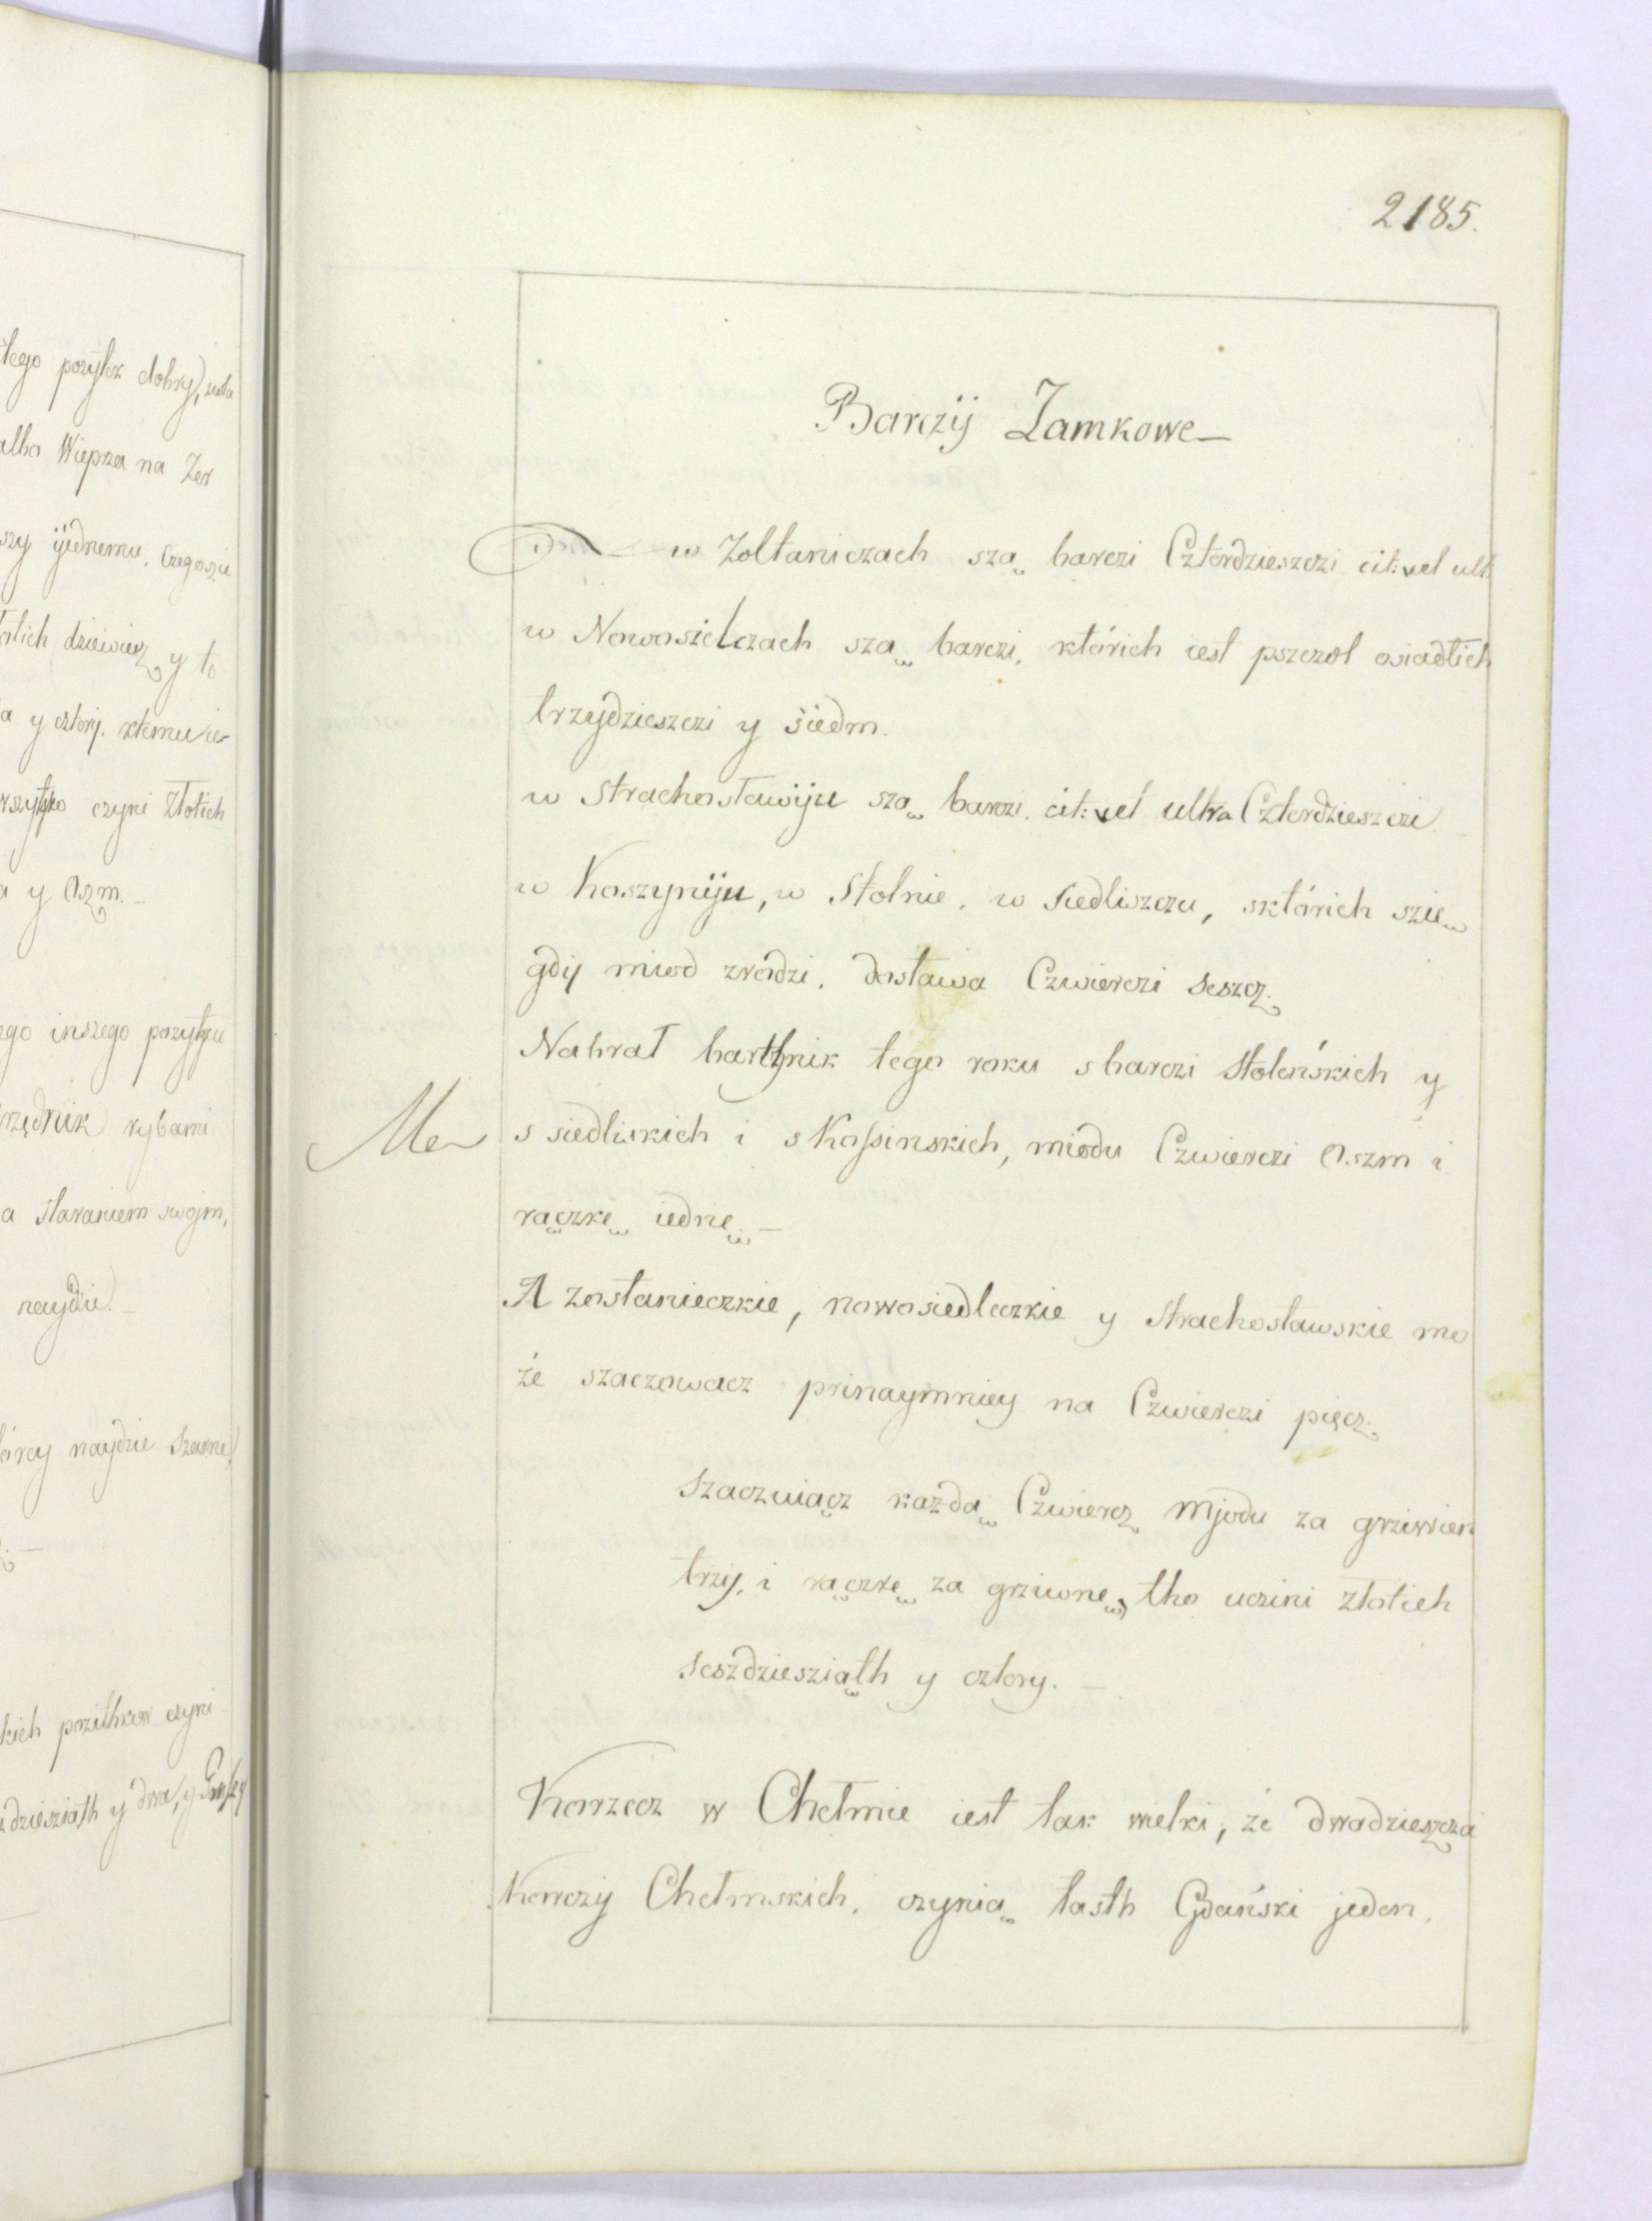 2185.
Barczÿ Zamkowe
w Zoltaniczach szą barczi Czterdzieszczi cit: vel ult:
w Nowosielczach szą barczi, którich iest pszczol osiadłich
trzydzieszczi y siedm.
w Strachosławÿu szą barczi. cit: vel ultra Czterdzieszczi
w Koszynÿu, w Stolnie, w Siedliszczu, sktórich szię
gdÿ miod zrodzi, dostawa Czwierczi szescz.
Nabrał barthnik tego roku s barczi Stoleńskich y
Me s siedliskich i s Kossinskich, miodu Czwierczi Oszm i
rączkę iednę.
A zostanieczkie, nowosiedleczkie y strachosławskie mo
że szaczowacz prinaymniey na Czwierczi pięcz.
Szaczuiącz każdą Czwiercz Mjodu za grziwien
trzÿ, i rączkę za grziwnę, tho uczini złotich
szeszdziesziąth y cztery.
Korzecz w Chełmie iest tak wielki, że dwadzieszcza
Korczÿ Chełmskich, czynią łasth Gdański jeden.
tego pozytek dobry,
albo Wieprza na Zer
szy ÿednemu, Czegoszie
dziewiecz y to
a y cztery, ktemu
wszytko czyni Złotich
a y Oszm.
ego inszego pozytku
rzędnik rybami
a staraniem swojm,
naydzie.
órey naydzie
kich pozithkow czyni
dziesziąth y dwa, y